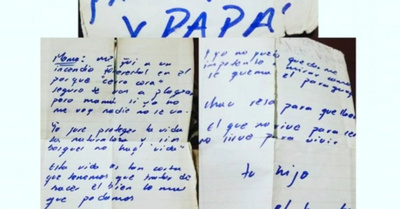 Y PAPÁ
Mamá: me fui a un
incendio forestal en el
porque cerro cora
seguro te van a
pero mamá si yo no
me voy nadie no se va.
Yo jure proteger la vida
la naturaleza y sin
bosque no hay "vida"
Esta vida es tan corta
que tenemos que tratar de
hacer el bien lo mas
que podamos
Y yo no puedo quedarme
impotente mirar como
se quema el paraguay
chau resa para que llueva
El que no vive para
no sirve para vivir
tu hijo